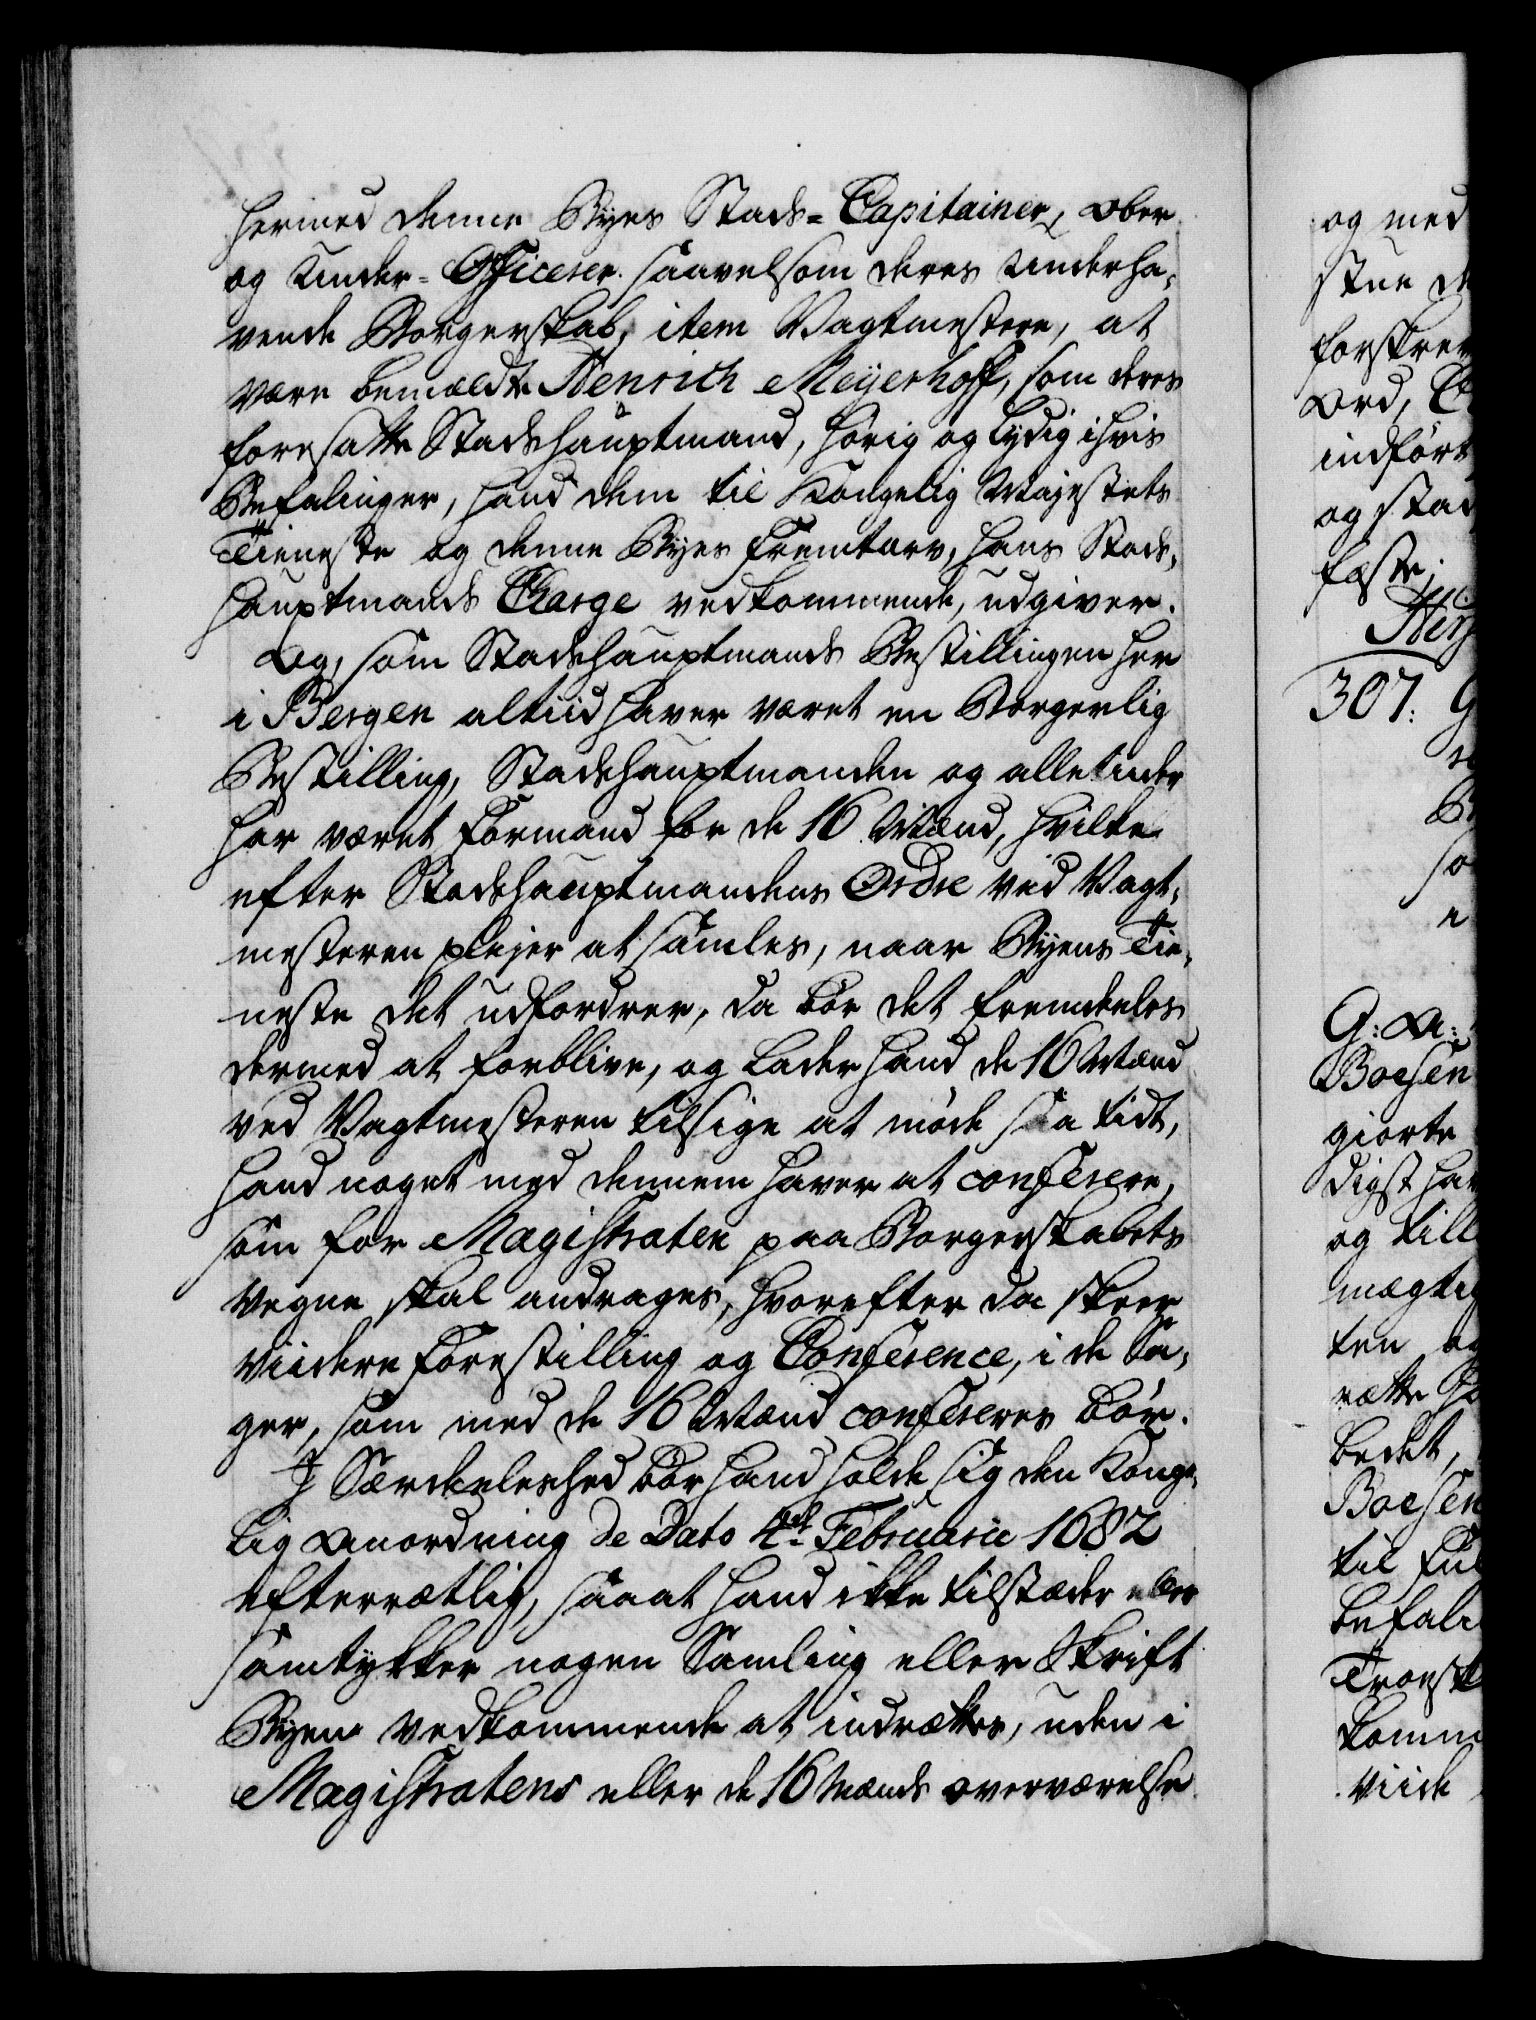 hermed denne Byes Stads-Capitainer, Ober
og Under-Officerer saavelsom deres Underha-
vende Borgerskab, item Vagtmestere, at
være bemældte Henrich Meyerhoff, som deres
foresatte Stadshauptmand, hörig og lydig i hvis
Befalinger, hand dem til Kongelig Majestets
Tieneste og denne Byes Fremtarv, hans Stads-
hauptmands Charge vedkommende, udgiver.
Og, som Stadshauptmands Bestillingen her
i Bergen altiid haver været en Borgerlig
Bestilling, Stadshauptmanden og alletider
har været Formand for de 16 Mænd, hvilke
efter Stadshauptmandens Ordre ved Vagt-
mesteren plejer at samles, naar Byens Tie-
neste det udfordrer, da bör det fremdeeles
dermed at forblive, og lader hand de 16 Mænd
ved Vagtmesteren tilsige at möde saa tidt,
hand noget med dennem haver at conferere,
som for Magistraten paa Borgerskabets
Vegne skal andrages, hvorefter da skeer
viidere Forestilling og Conference, i de Sa-
ger, som med de 16 Mænd confereres bör.
J Særdeeleshed bör hand holde sig den Konge-
lig Anordning de Dato 4de Februarii 1682
efterrætlig, saaat hand ikke tilstæder eller
samtykker nogen Samling eller Skrift
Byen vedkommende at indrættes, uden i
Magistratens eller de 16 Mænds overværelse
og med
stue
forskrev
Ord,
indfört
og stad
fæste.
307.
G: A:
Boesen
giorte
digst hav
og till
mægtig
ten og
rætte
bedet,
Boesen
til
befale
Troesk
komm
viide